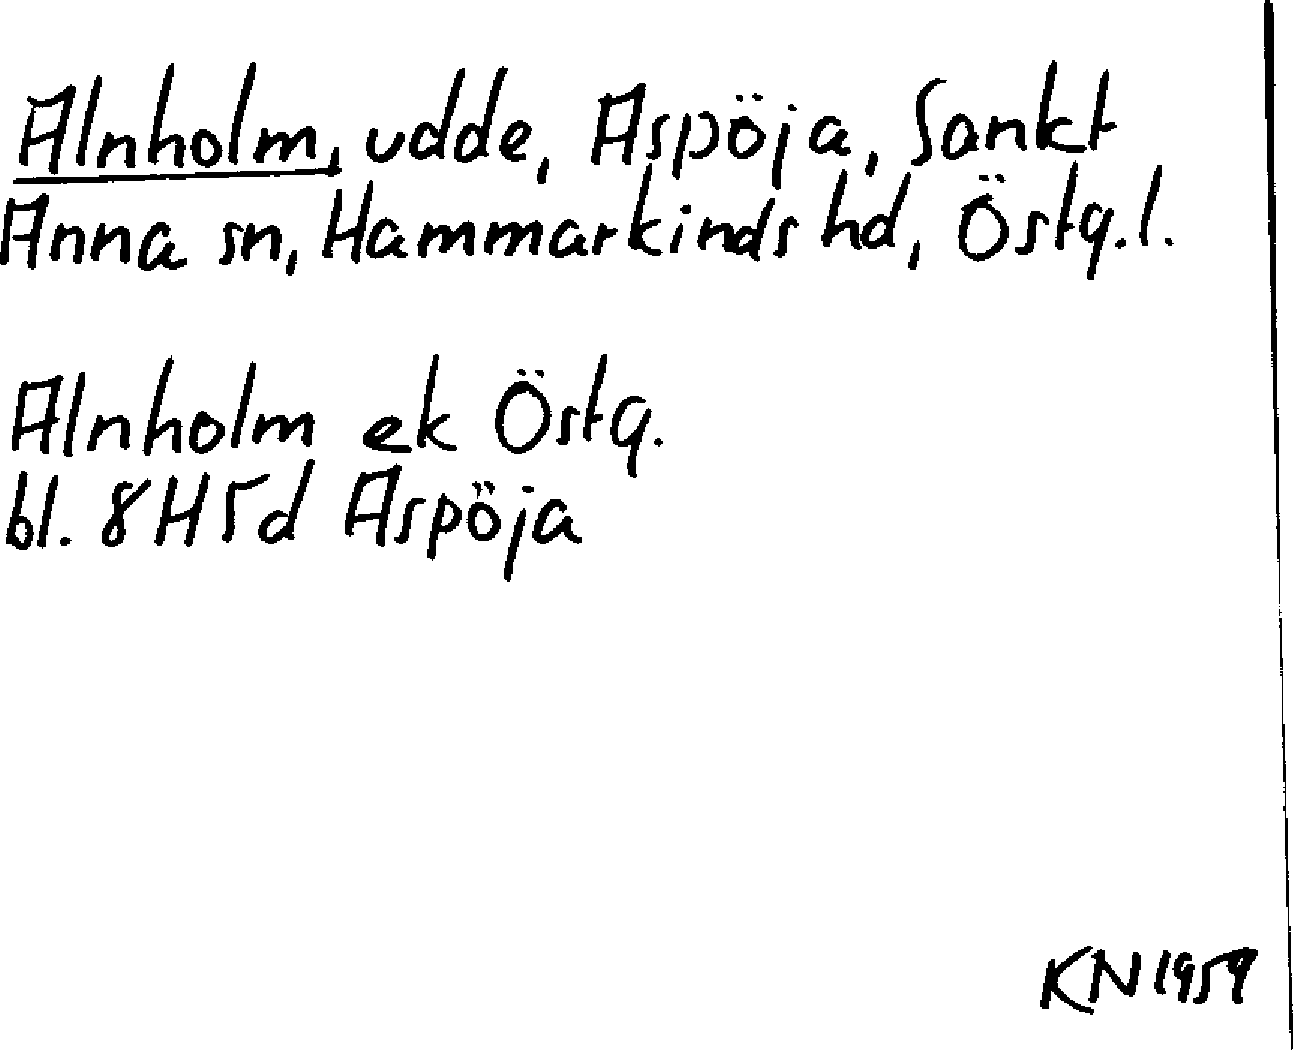 Alnholm, udde, Aspöja, Sankt
Anna sn, Hammarkinds hd, Östg.l.
Alnholm ek Östg.
bl. 8H5d Aspöja
KN 1959